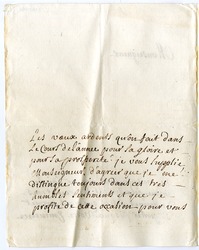 Les vœux ardents qu'on fait dans
Le Cours de l'année pour sa gloire et
pour sa prosperité je vous supplie
Monseigneur, d'agreer que je me
distingue toujours dans ces tres
humbles sentiments et que je
profite de cete occasion pour vous